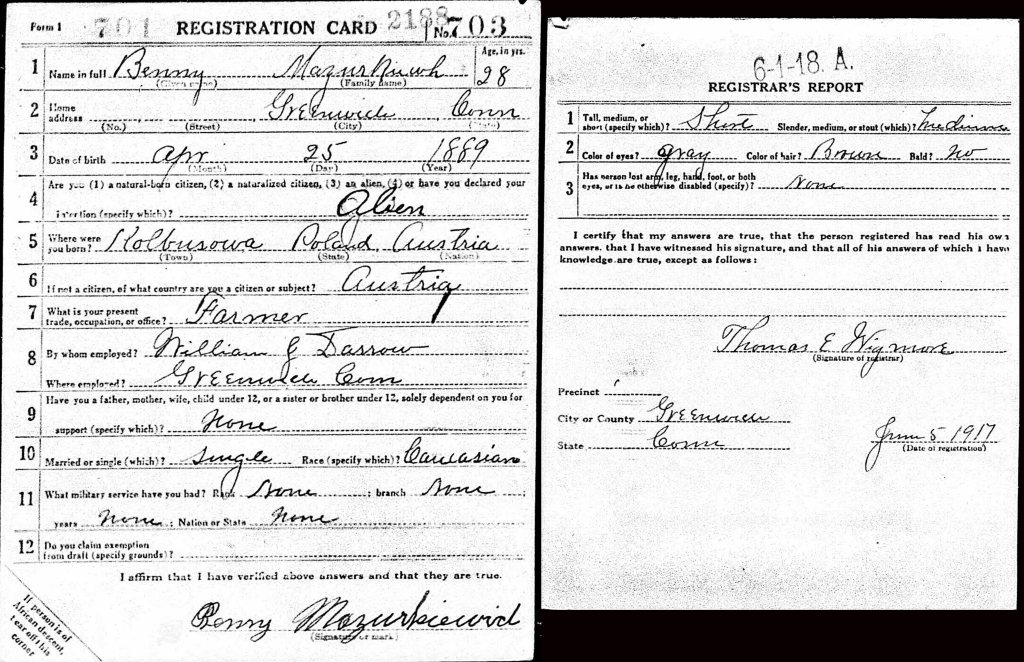 Form 1 701 REGISTRATION CARD 2188 No. 703
1 Name in full Benny Mazurkiewh Age, in yrs. 28
(Given name) (Family name)
2 Home address Greenwich Conn
(No.) (Street) (City) (State)
3 Date of birth Apr 25 1889
(Month) (Day) (Year)
4 Are you (1) a natural-born citizen, (2) a naturalized citizen, (3) an alien, (4) or have you declared your
intention (specify which)? Alien
5 Where were you born? Kolbusowa Poland Austria
(Town) (State) (Nation)
6 If not a citizen, of what country are you a citizen or subject? Austria
7 What is your present trade, occupation, or office? Farmer
8 By whom employed? William J Darrow
Where employed? Greenwich Conn
9 Have you a father, mother, wife, child under 12, or a sister or brother under 12, solely dependent on you for
support (specify which)? None
10 Married or single (which)? Single Race (specify which)? Caucasian
11 What military service have you had? Rank None ; branch None ;
years None ; Nation or State None
12 Do you claim exemption from draft (specify grounds)?
I affirm that I have verified above answers and that they are true.
Benny Mazurkiewicd
(Signature or mark)
If person is of
African descent,
tear off this
corner
6-1-18. A.
REGISTRAR'S REPORT
1 Tall, medium, or short (specify which)? Short Slender, medium, or stout (which)? Medium
2 Color of eyes? Gray Color of hair? Brown Bald? No
3 Has person lost arm, leg, hand, foot, or both eyes, or is he otherwise disabled (specify)? None
I certify that my answers are true, that the person registered has read his own
answers, that I have witnessed his signature, and that all of his answers of which I have
knowledge are true, except as follows:
Thomas E Wigmore
(Signature of registrar)
Precinct
City or County Greenwich
State Conn
June 5 1917
(Date of registration)